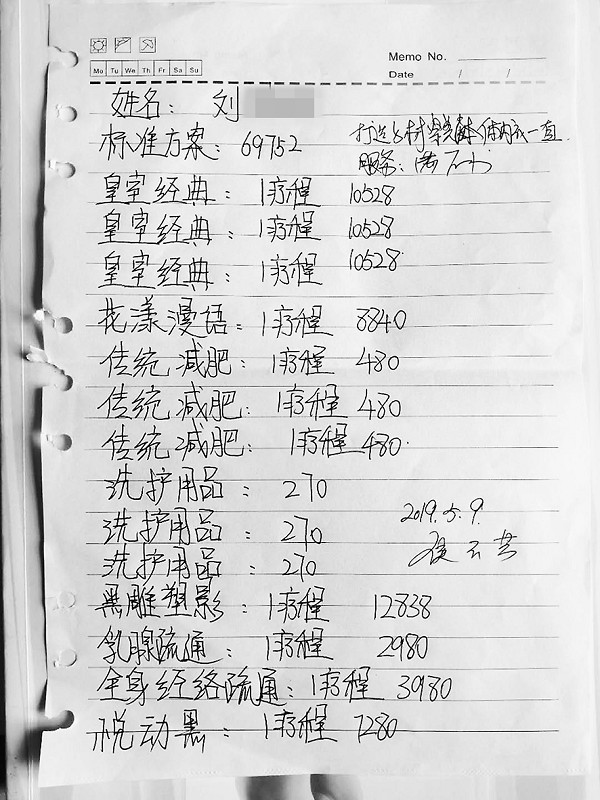 Memo No.
Mo Tu We Th Fr Sa Su
Date / /
姓名: 刘
标准方案: 69752
服务: 满
皇室经典: 1疗程 10528
皇室经典: 1疗程 10528
皇室经典: 1疗程 10528
花漾漫语: 1疗程 8840
传统减肥: 1疗程 480
传统减肥: 1疗程 480
传统减肥: 1疗程 480
洗护用品: 270
2019.5.9.
洗护用品: 270
洗护用品: 270
黑雕塑影: 1疗程 12838
乳腺疏通: 1疗程 2980
全身经络疏通: 1疗程 3980
悦动黑: 1疗程 7280